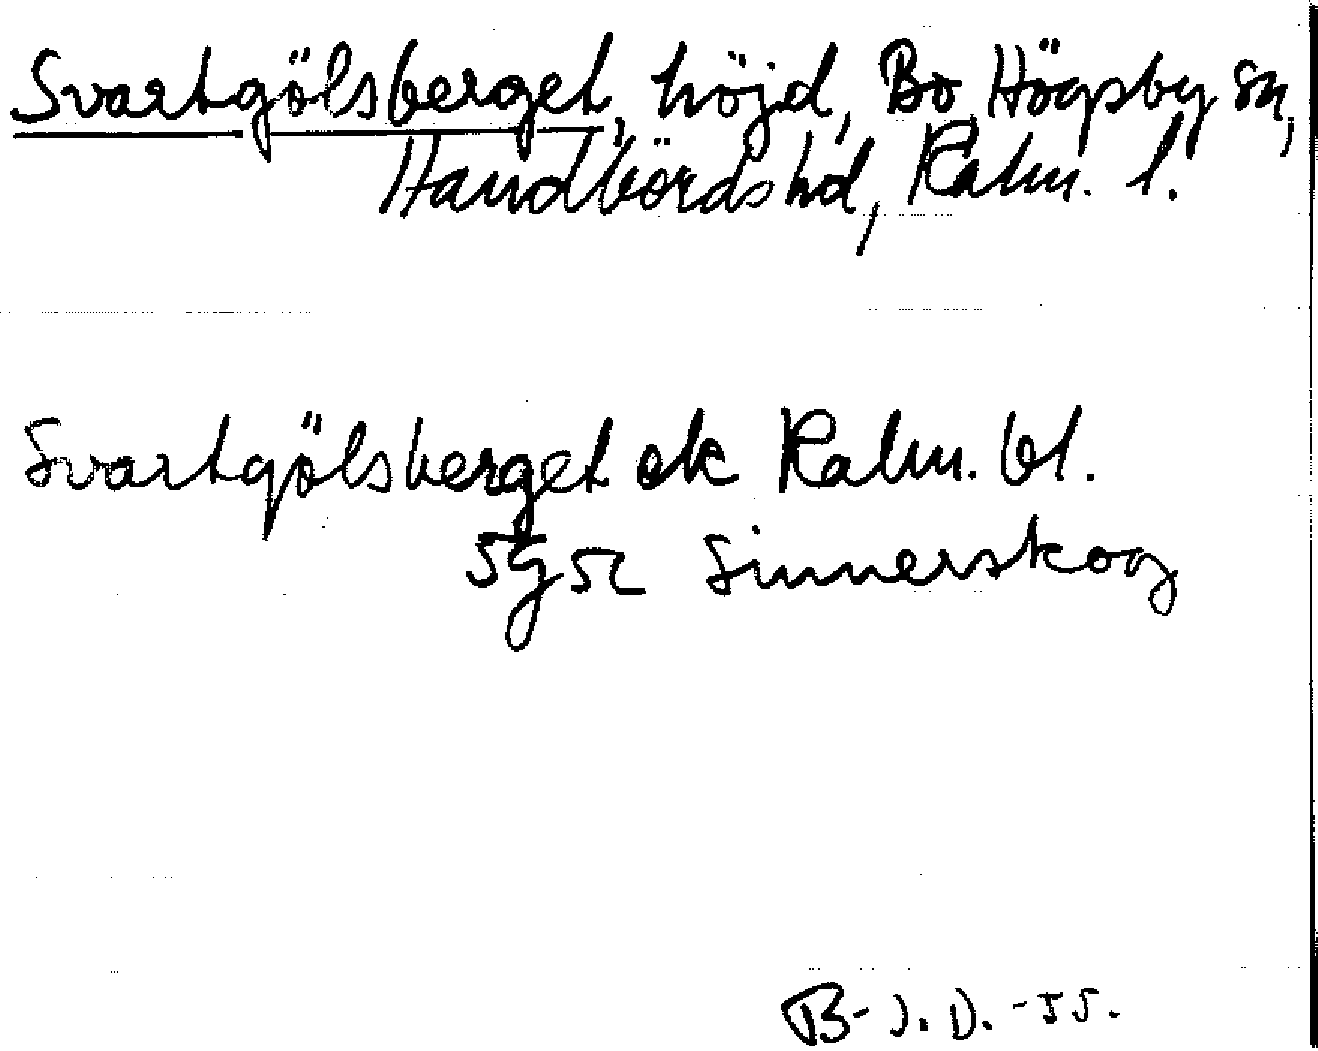 Svartgölsberget, höjd, Bo, Högsby sn,
Handbörds hd, Kalm. l.
Svartgölsberget ek Kalm. bl.
5g52 Sinnerskog
B-J. D. -55.